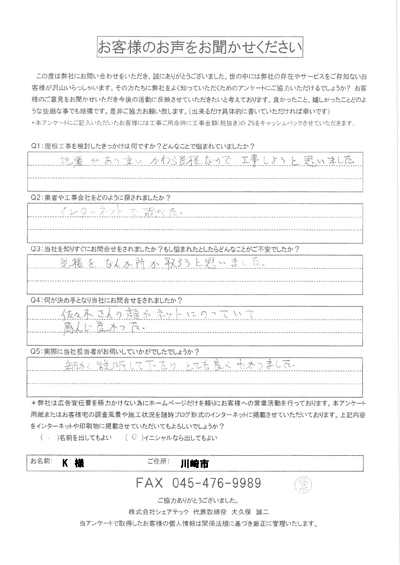 お客様のお声をお聞かせください
この度は弊社にお問い合わせをいただき、誠にありがとうございました。世の中には弊社の存在やサービスをご存知ないお
客様が沢山いらっしゃいます。その方たちに弊社をよく知っていただくためのアンケートにご協力いただけるでしょうか? お客
様のご意見をお聞かせいただき今後の活動に反映させていただきたいと考えております。良かったこと、嬉しかったことどのよう
な些細な事でも結構です。是非ご協力お願い致します。(出来るだけ具体的に書いていただければ幸いです)
*本アンケートにご記入いただいたお客様には工事ご用命時に工事金額(税抜き)の2%をキャッシュバックさせていただきます。
Q1:屋根工事を検討したきっかけは何ですか?どんなことで悩まれていましたか?
地震が 多い かわら屋根なので 工事しようと思いました
Q2:業者や工事会社をどのように探されましたか?
インターネットで 調べた。
Q3:当社を知りすぐにお問合せをされましたか?もし悩まれたとしたらどんなことがご不安でしたか?
見積を なん か所か 取ろうと思いました。
Q4:何が決め手となり当社にお問合せをされましたか?
佐々木さんの顔がネットにのっていて
感じに 良かった。
Q5:実際に当社担当者がお伺いしていかがでしたでしょうか?
細かく 説明して とても良く わかりました。
*弊社は広告宣伝費を極力かけない為にホームページだけを頼りにお客様への営業活動を行っております。本アンケート
用紙またはお客様宅の調査風景や施工状況を随時ブログ形式のインターネットに掲載させていただいております。上記内容
をインターネットや印刷物に掲載させていただいてもよろしいでしょうか?
( )名前を出してもよい ( O )イニシャルなら出してもよい
お名前: K 様 ご住所: 川崎市
FAX 045-476-9989
ご協力ありがとうございました。
株式会社シェアテック 代表取締役 大久保 誠二
当アンケートで取得したお客様の個人情報は関係法規に基づき厳正に管理いたします。